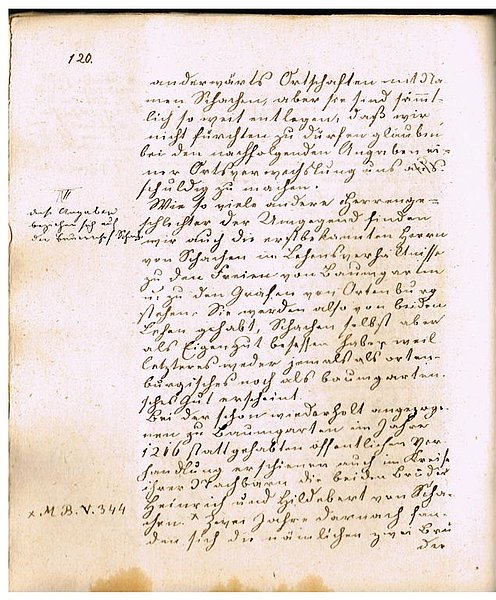 120.
anderwärts Ortschaften mit Na-
men Schachen, aber sie sind sämmt-
lich so weit entlegen, daß wir
nicht fürchten zu dürfen glauben
bei den nachfolgenden Angaben ei-
ner Ortsverwechslung uns
schuldig zu machen.
Wie so viele andere Herrenge-
schlechter der Umgegend finden
wir auch die erstbekannten Herrn
von Schachen im Lehensverhältnisse
zu den Freien von Baumgarten
u. zu den Grafen von Ortenburg
stehen. Sie werden also von beiden
Lehen gehabt, Schachen selbst aber
als Eigengut besessen haben, weil
letzteres weder jemals als orten-
burgisches noch als baumgarten-
sches Gut erscheint.
Bei der schon wiederholt angezoge-
nen zu Baumgarten im Jahre
1216 stattgehabten öffentlichen Ver-
handlung erschienen auch im Kreise
ihrer Nachbarn die beiden Brüder
Heinrich und Hildebert von Scha-
chen. x Zwei Jahre darnach fan-
den sich die nämlichen zwei Brü
der
diese Angaben
beziehen sich auf
x. M. B. V. 344